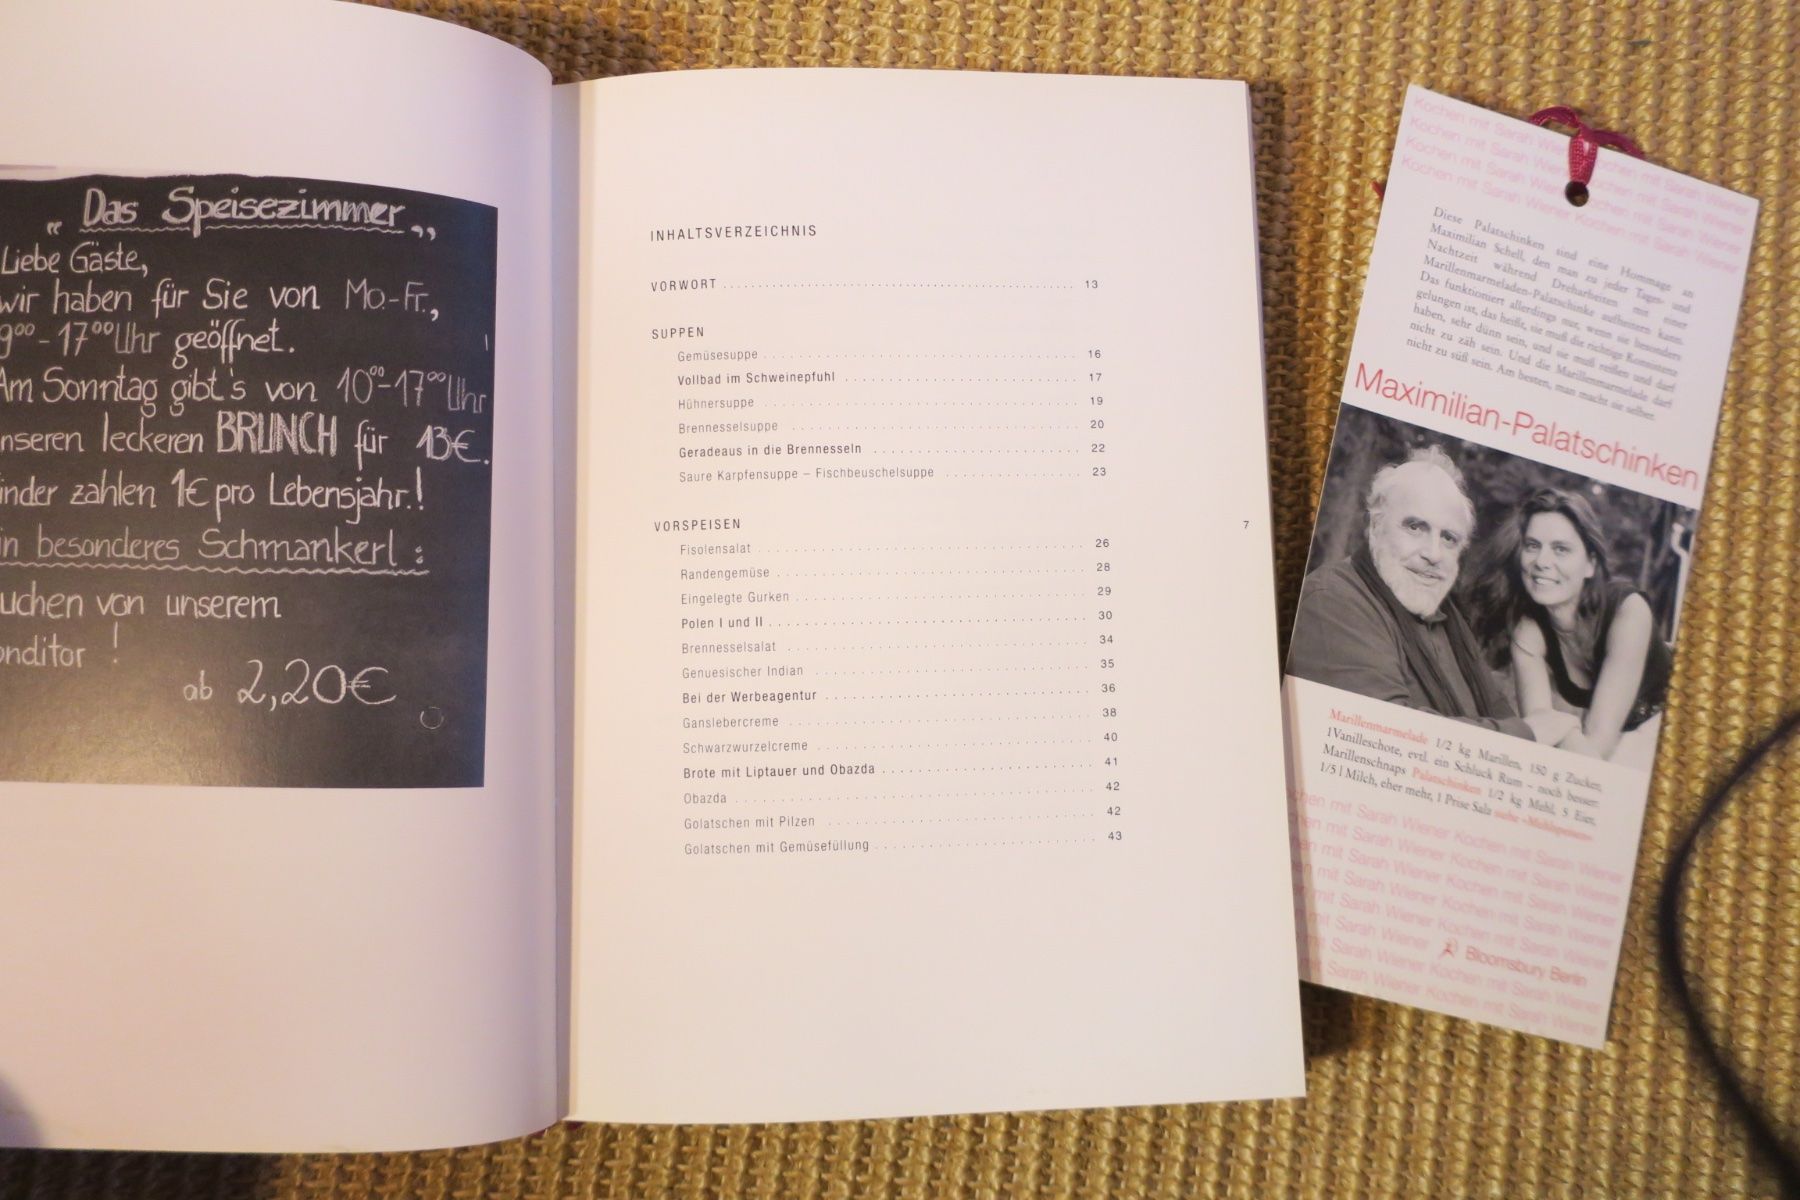 „ Das Speisezimmer „
Liebe Gäste,
wir haben für Sie von Mo.-Fr.,
9⁰⁰-17⁰⁰Uhr geöffnet.
Am Sonntag gibt's von 10⁰⁰-17⁰⁰Uhr
nseren leckeren BRUNCH für 13€.
inder zahlen 1€ pro Lebensjahr.!
in besonderes Schmankerl :
uchen von unserem
onditor !
ab 2,20€
INHALTSVERZEICHNIS
VORWORT 13
SUPPEN
Gemüsesuppe 16
Vollbad im Schweinepfuhl 17
Hühnersuppe 19
Brennesselsuppe 20
Geradeaus in die Brennesseln 22
Saure Karpfensuppe – Fischbeuschelsuppe 23
VORSPEISEN
Fisolensalat 26
Randengemüse 28
Eingelegte Gurken 29
Polen I und II 30
Brennesselsalat 34
Genuesischer Indian 35
Bei der Werbeagentur 36
Ganslebercreme 38
Schwarzwurzelcreme 40
Brote mit Liptauer und Obazda 41
Obazda 42
Golatschen mit Pilzen 42
Golatschen mit Gemüsefüllung 43
7
Kochen mit Sarah Wiener Kochen mit Sarah Wiener
Kochen mit Sarah Wiener Kochen mit Sarah Wiener
Kochen mit Sarah Wiener Kochen mit Sarah Wiener
Kochen mit Sarah Wiener Kochen mit Sarah Wiener
Diese Palatschinken sind eine Hommage an
Maximilian Schell, den man zu jeder Tages- und
Nachtzeit während Dreharbeiten mit einer
Marillenmarmeladen-Palatschinke aufheitern kann.
Das funktioniert allerdings nur, wenn sie besonders
gelungen ist, das heißt, sie muß die richtige Konsistenz
haben, sehr dünn sein, und sie muß reißen und darf
nicht zu zäh sein. Und die Marillenmarmelade darf
nicht zu süß sein. Am besten, man macht sie selber.
Maximilian-Palatschinken
Marillenmarmelade 1/2 kg Marillen, 150 g Zucker,
1Vanilleschote, evtl. ein Schluck Rum – noch besser:
Marillenschnaps Palatschinken 1/2 kg Mehl, 5 Eier,
1/5 l Milch, eher mehr, 1 Prise Salz siehe »Mehlspeisen«
hen mit Sarah Wiener Kochen mit Sarah Wiener
chen mit Sarah Wiener Kochen mit Sarah Wiener
en mit Sarah Wiener Kochen mit Sarah Wiener
en mit Sarah Wiener Kochen mit Sarah Wiener
n mit Sarah Wiener Kochen mit Sarah Wiener
n mit Sarah Wiener Bloomsbury Berlin
mit Sarah Wiener Kochen mit Sarah Wiener
mit Sarah Wiener Kochen mit Sarah Wiener